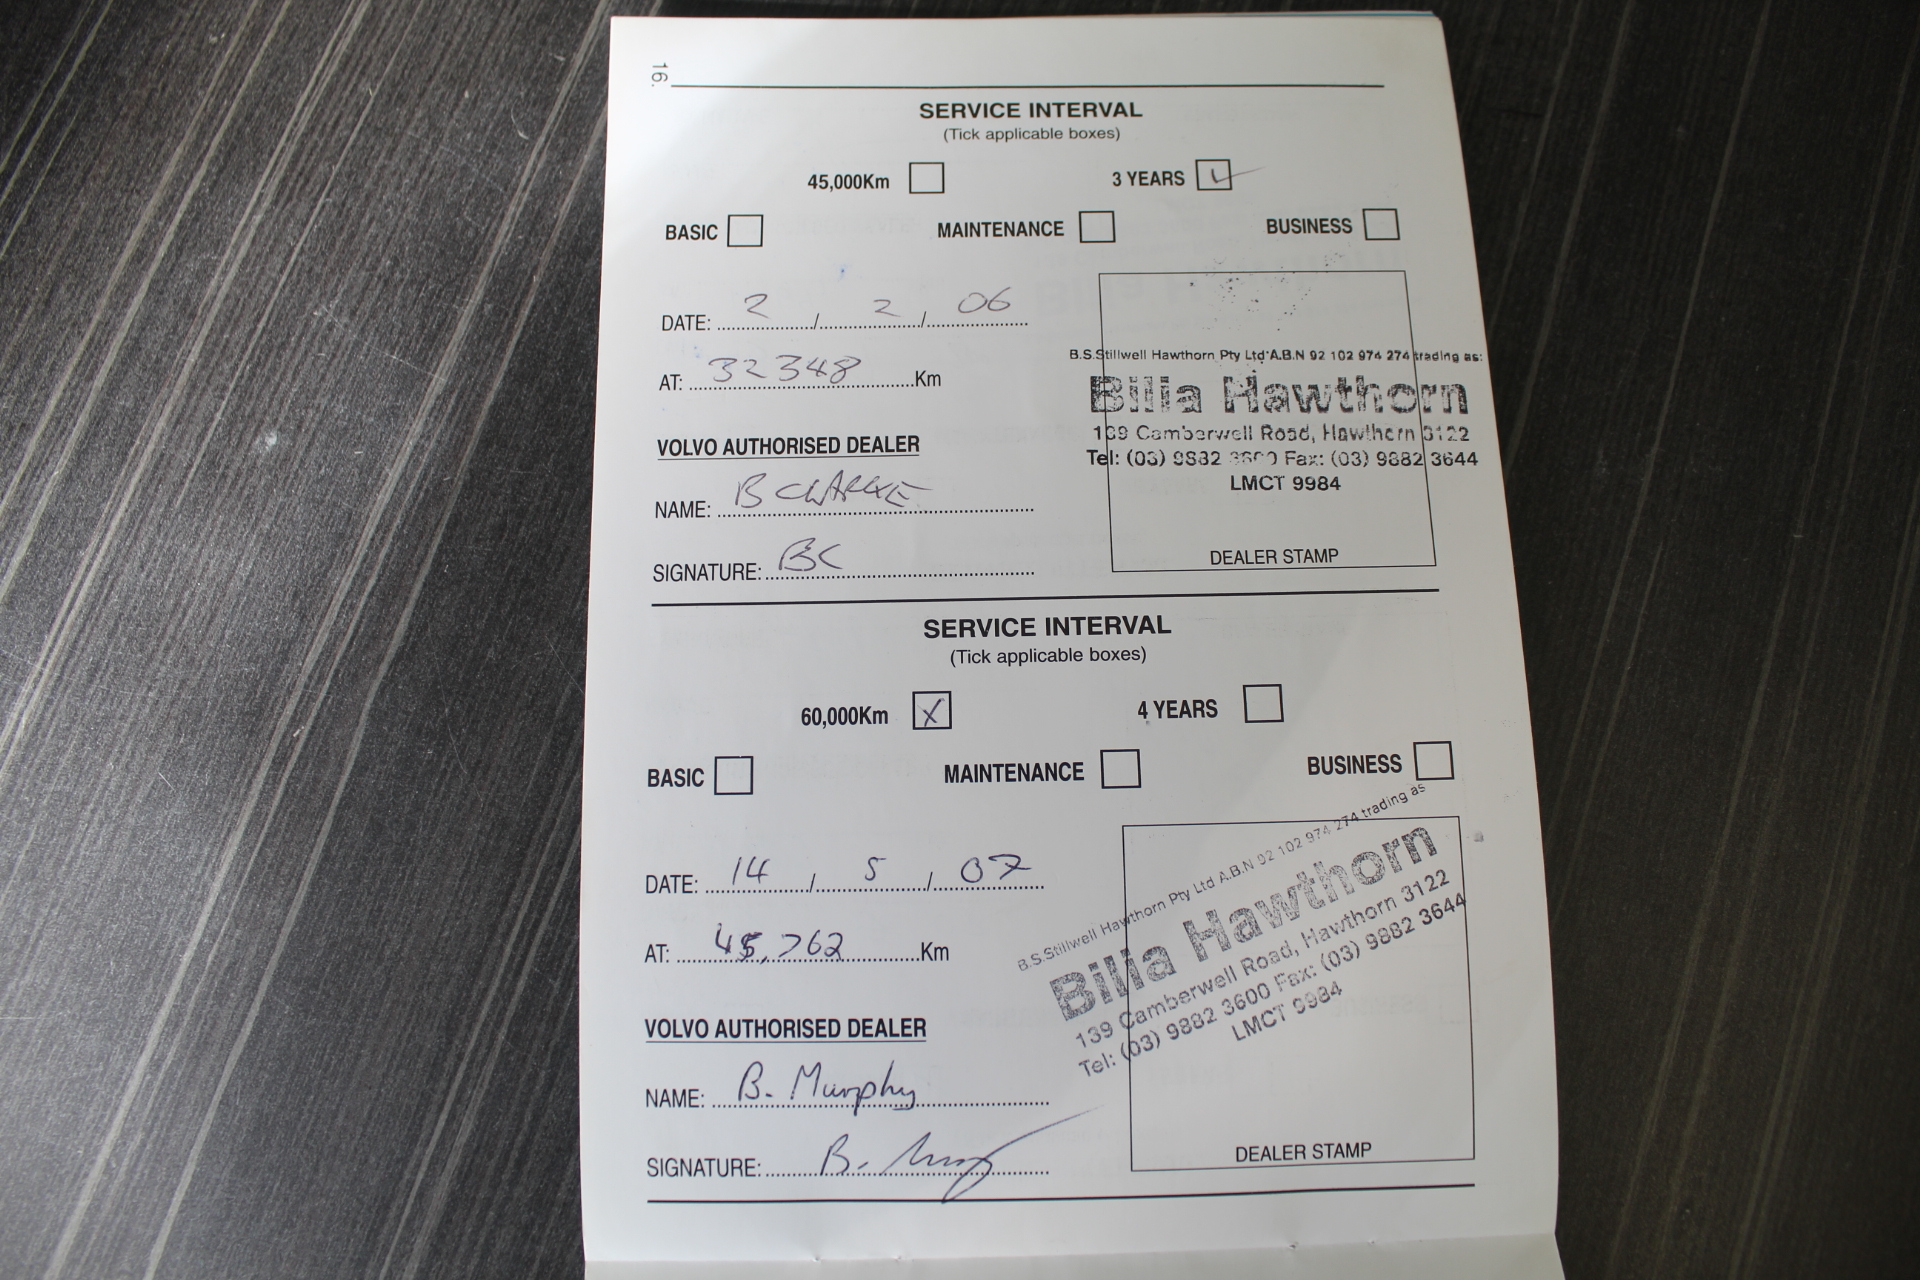 16.
SERVICE INTERVAL
(Tick applicable boxes)
45,000Km 3 YEARS
BASIC MAINTENANCE BUSINESS
DATE: 2 / 2 / 06
AT: 32348 Km
VOLVO AUTHORISED DEALER
NAME: B CLARKE
SIGNATURE: BC
B.S.Stillwell Hawthorn Pty Ltd A.B.N 92 102 974 274 trading as:
Bilia Hawthorn
139 Camberwell Road, Hawthorn 3122
Tel: (03) 9882 3600 Fax: (03) 9882 3644
LMCT 9984
DEALER STAMP
SERVICE INTERVAL
(Tick applicable boxes)
60,000Km X 4 YEARS
BASIC MAINTENANCE BUSINESS
DATE: 14 / 5 / 07
AT: 45,762 Km
VOLVO AUTHORISED DEALER
NAME: B. Murphy
SIGNATURE: B.
B.S.Stillwell Hawthorn Pty Ltd A.B.N 92 102 974 274 trading as
Bilia Hawthorn
139 Camberwell Road, Hawthorn 3122
Tel: (03) 9882 3600 Fax: (03) 9882 3644
LMCT 9984
DEALER STAMP